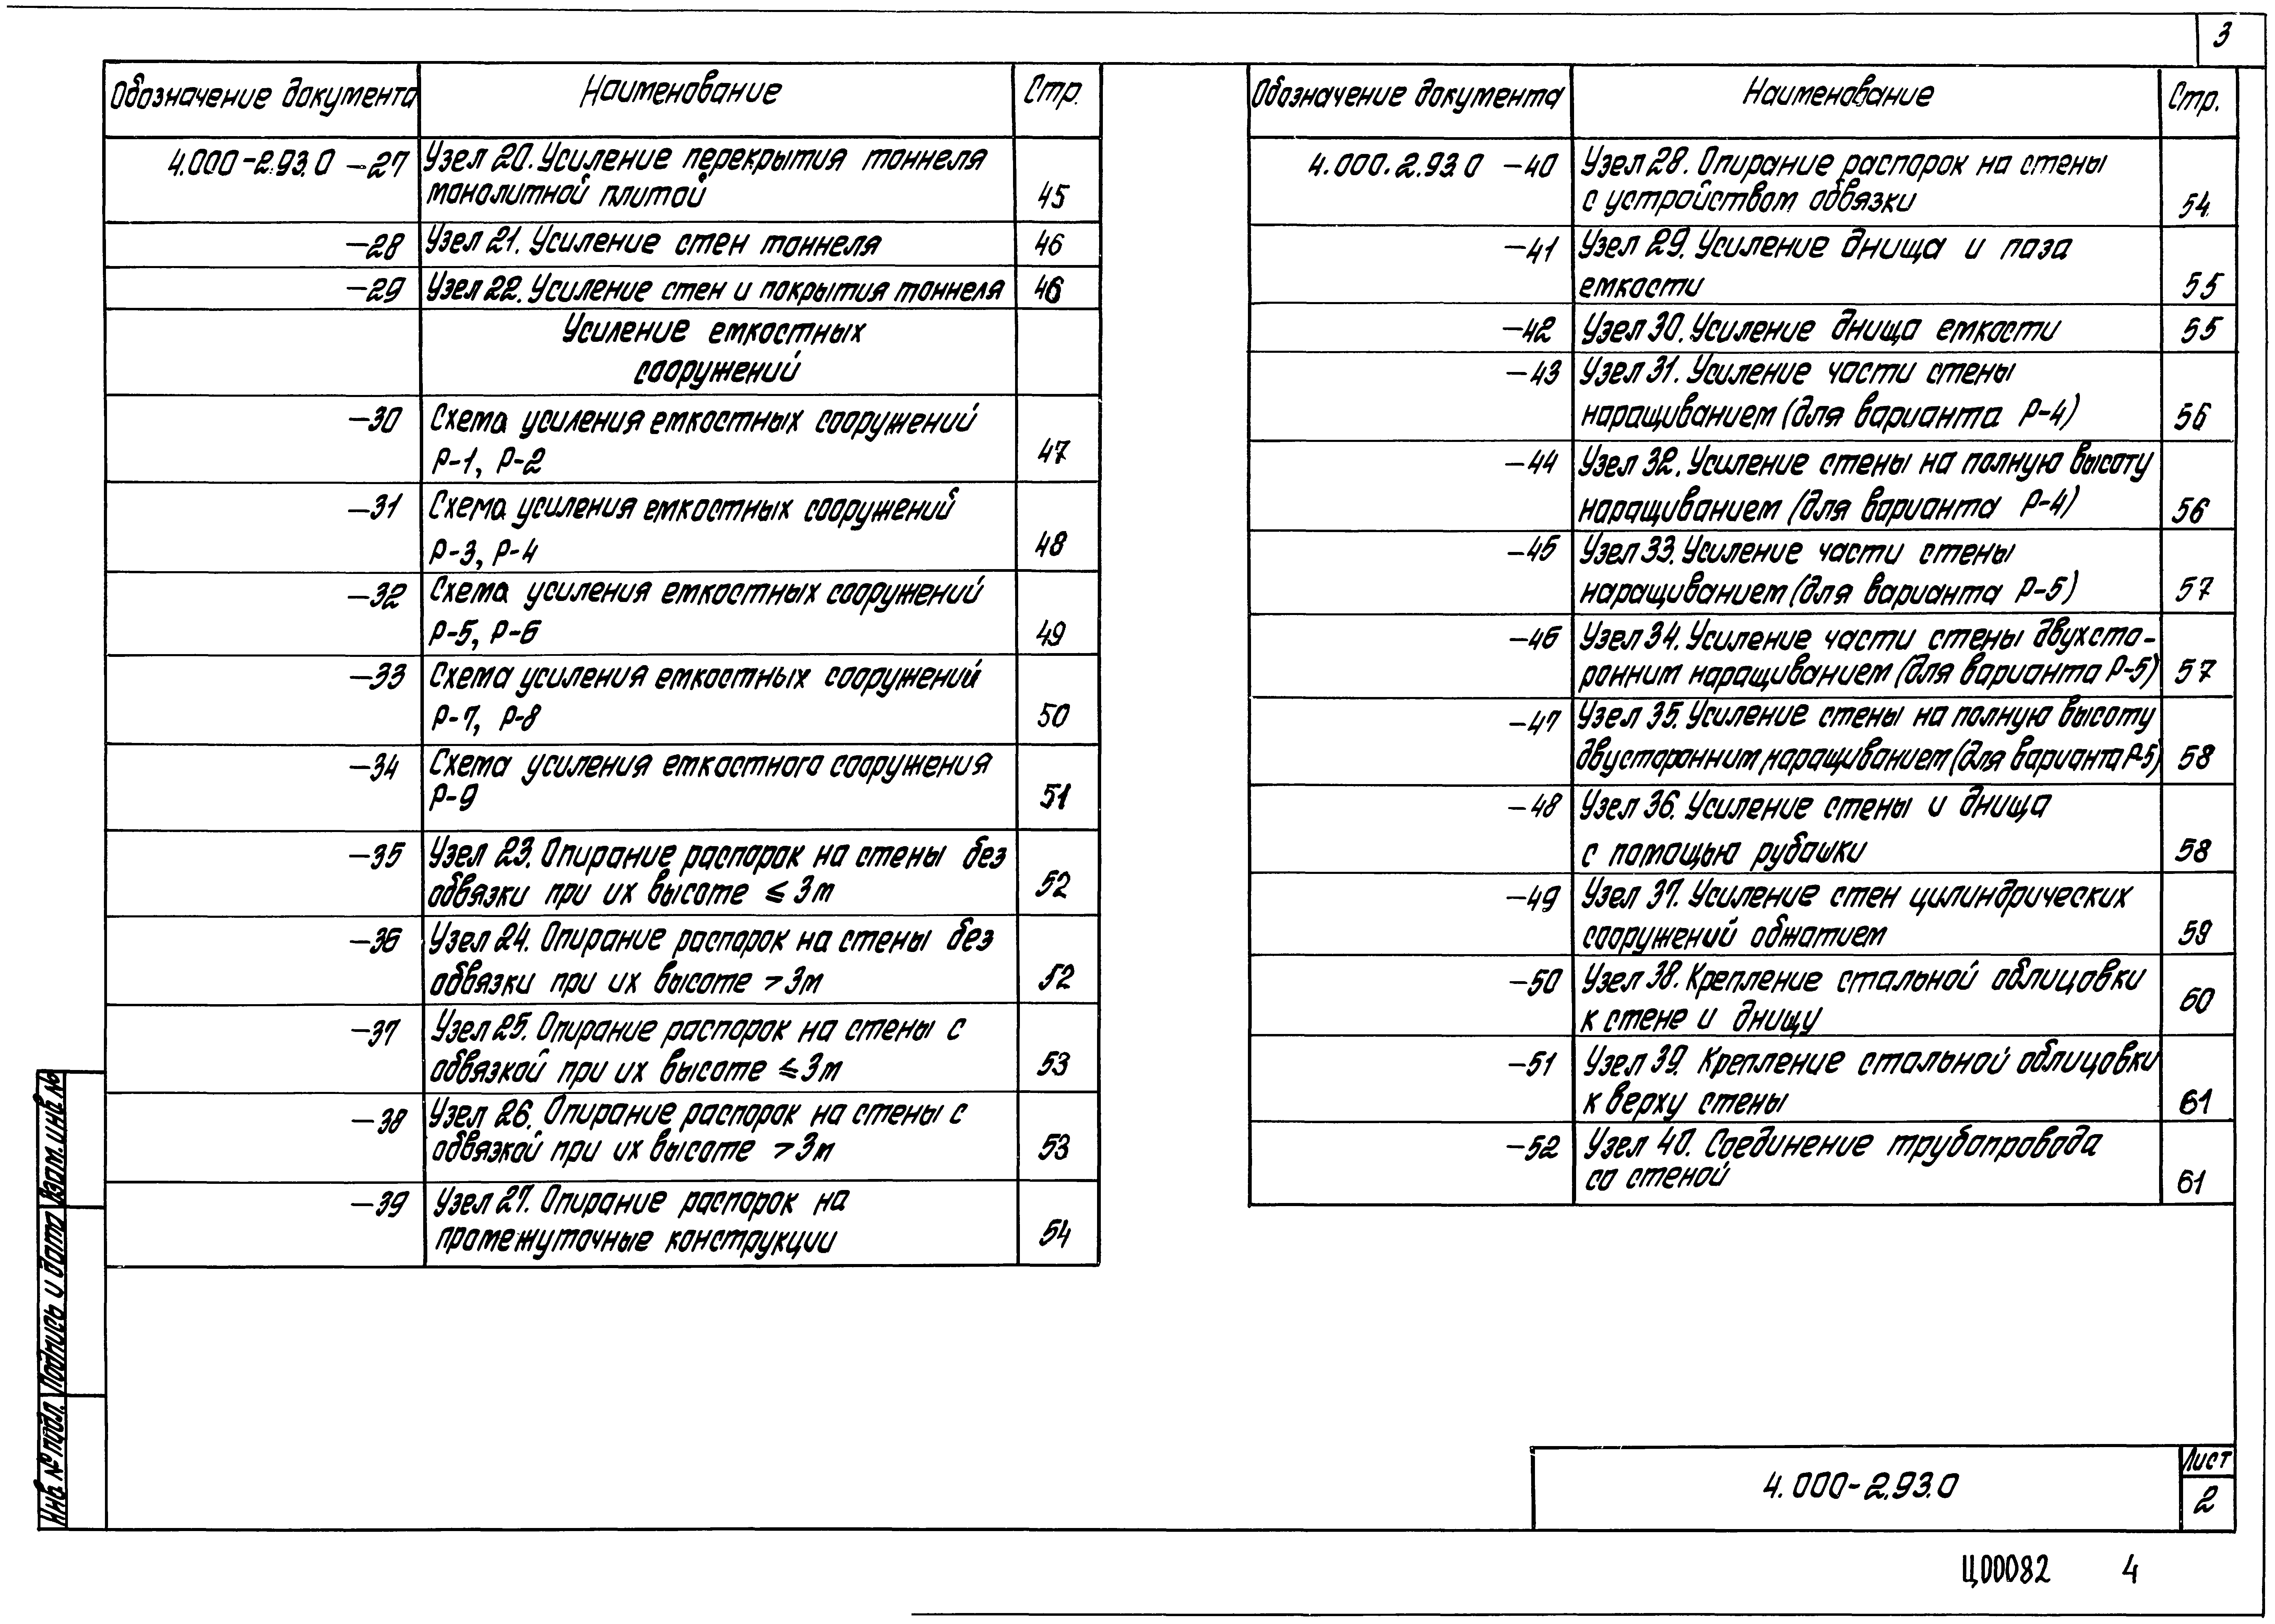 3
Обозначение документа Наименование Стр.
4.000-2.93.0 -27 Узел 20. Усиление перекрытия тоннеля
монолитной плитой 45
-28 Узел 21. Усиление стен тоннеля 46
-29 Узел 22. Усиление стен и покрытия тоннеля 46
Усиление емкостных
сооружений
-30 Схема усиления емкостных сооружений
Р-1, Р-2 47
-31 Схема усиления емкостных сооружений
Р-3, Р-4 48
-32 Схема усиления емкостных сооружений
Р-5, Р-6 49
-33 Схема усиления емкостных сооружений
Р-7, Р-8 50
-34 Схема усиления емкостного сооружения
Р-9 51
-35 Узел 23. Опирание распорок на стены без
обвязки при их высоте ≤ 3м 52
-36 Узел 24. Опирание распорок на стены без
обвязки при их высоте > 3м 52
-37 Узел 25. Опирание распорок на стены с
обвязкой при их высоте ≤ 3м 53
-38 Узел 26. Опирание распорок на стены с
обвязкой при их высоте > 3м 53
-39 Узел 27. Опирание распорок на
промежуточные конструкции 54
Обозначение документа Наименование Стр.
4.000.2.93.0 -40 Узел 28. Опирание распорок на стены
с устройством обвязки 54
-41 Узел 29. Усиление днища и паза
емкости 55
-42 Узел 30. Усиление днища емкости 55
-43 Узел 31. Усиление части стены
наращиванием (для варианта Р-4) 56
-44 Узел 32. Усиление стены на полную высоту
наращиванием (для варианта Р-4) 56
-45 Узел 33. Усиление части стены
наращиванием (для варианта Р-5) 57
-46 Узел 34. Усиление части стены двухсто-
ронним наращиванием (для варианта Р-5) 57
-47 Узел 35. Усиление стены на полную высоту
двусторонним наращиванием (для варианта Р-5) 58
-48 Узел 36. Усиление стены и днища
с помощью рубашки 58
-49 Узел 37. Усиление стен цилиндрических
сооружений обжатием 59
-50 Узел 38. Крепление стальной облицовки
к стене и днищу 60
-51 Узел 39. Крепление стальной облицовки
к верху стены 61
-52 Узел 40. Соединение трубопровода
со стеной 61
Взам. инв. №
Подпись и дата
Инв. № подл.
4.000-2.93.0
Лист
2
Ц00082 4